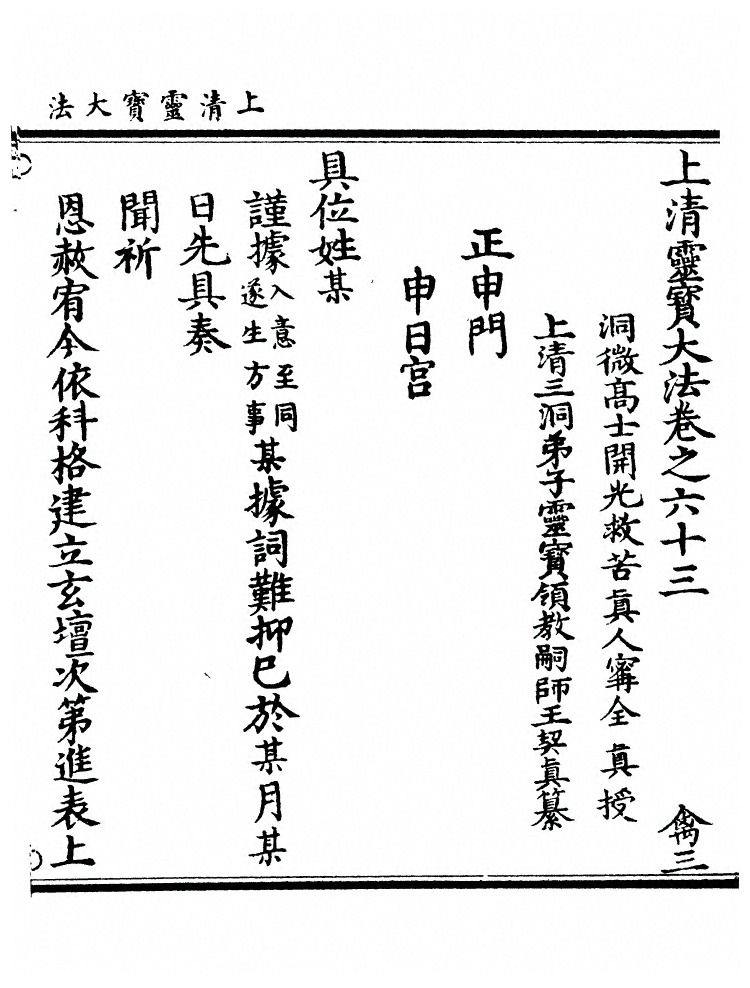 上清靈寶大法
上清靈寶大法卷之六十三 禽三
洞微高士開光救苦眞人寗全眞授
上清三洞弟子靈寶領教嗣師王契眞纂
正申門
申日宮
具位姓某
謹據入意至同遂生方事某據詞難抑巳於某月某
日先具奏
聞祈
恩赦宥今依科格建立玄壇次第進表上